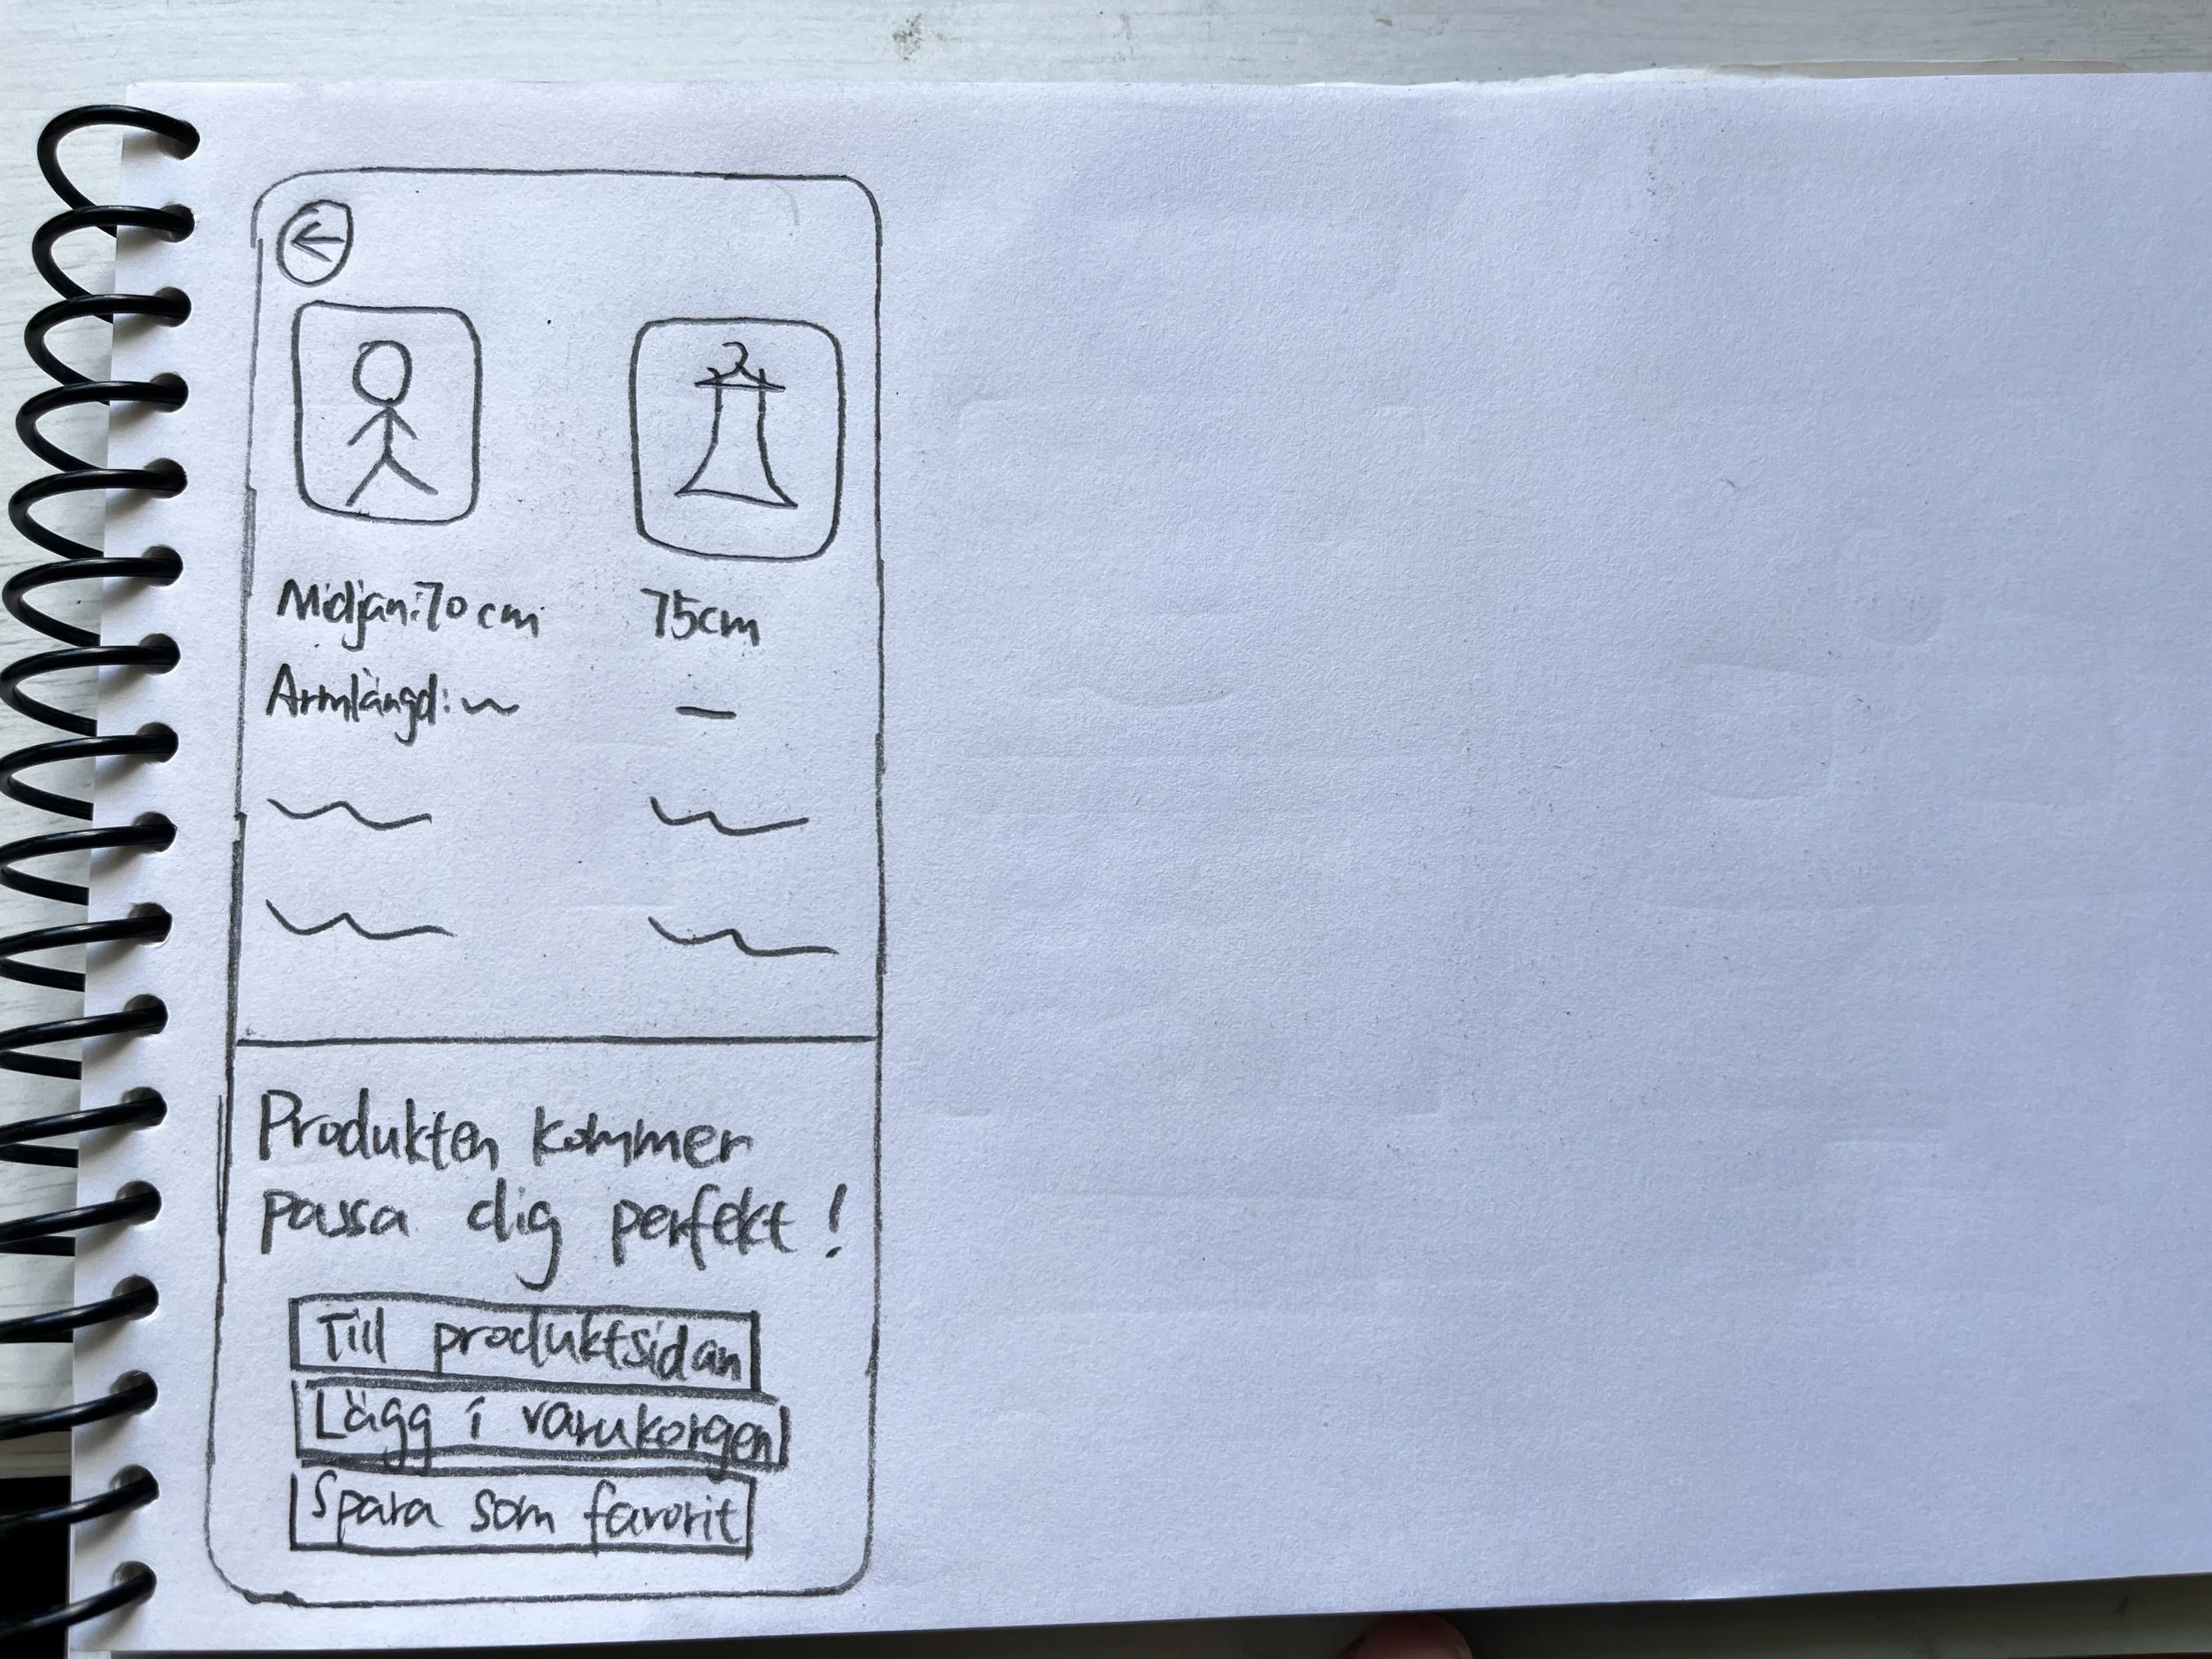 Midjan: 70 cm 75cm
Armlängd: —
Produkten kommer
passa dig perfekt!
Till produktsidan
Lägg i varukorgen
Spara som favorit